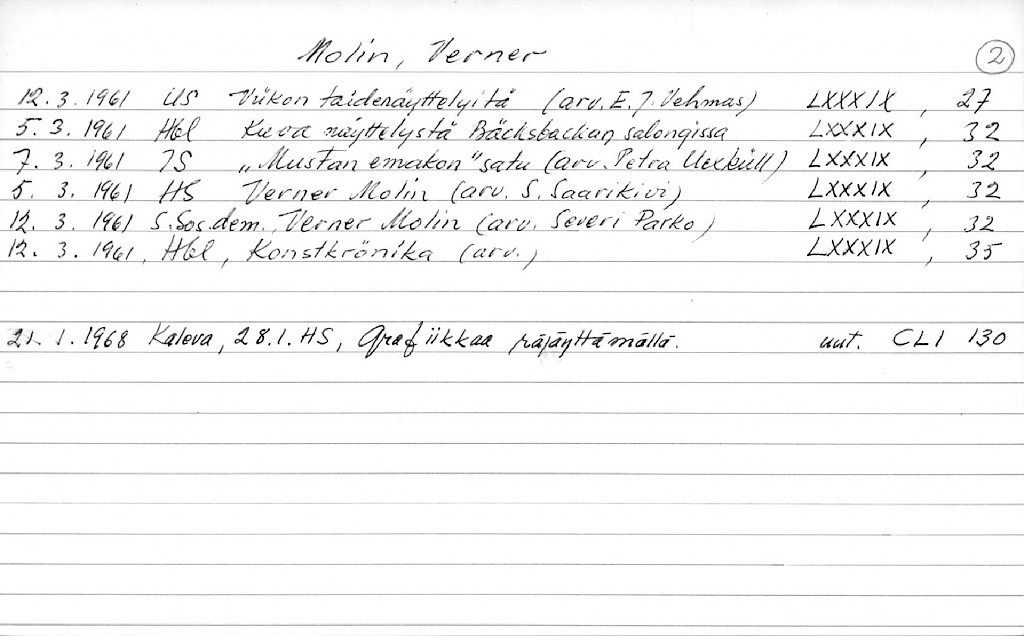 Molin, Verner 2
12.3.1961 US Viikon taidenäyttelyitä (arv. E.J. Vehmas) LXXXIX, 27
5.3.1961 Hbl Kuva näyttelystä Bäcksbackan salongissa LXXXIX, 32
7.3.1961 IS "Mustan emakon" satu (arv. Petra Uexküll) LXXXIX, 32
5.3.1961 HS Verner Molin (arv. S. Saarikivi) LXXXIX, 32
12.3.1961 S.Sos.dem., Verner Molin (arv. Severi Parko) LXXXIX, 32
12.3.1961, Hbl, Konstkrönika (arv.) LXXXIX, 35
21.1.1968 Kaleva, 28.1. HS, Grafiikkaa räjäyttämällä. uut. CLI 130